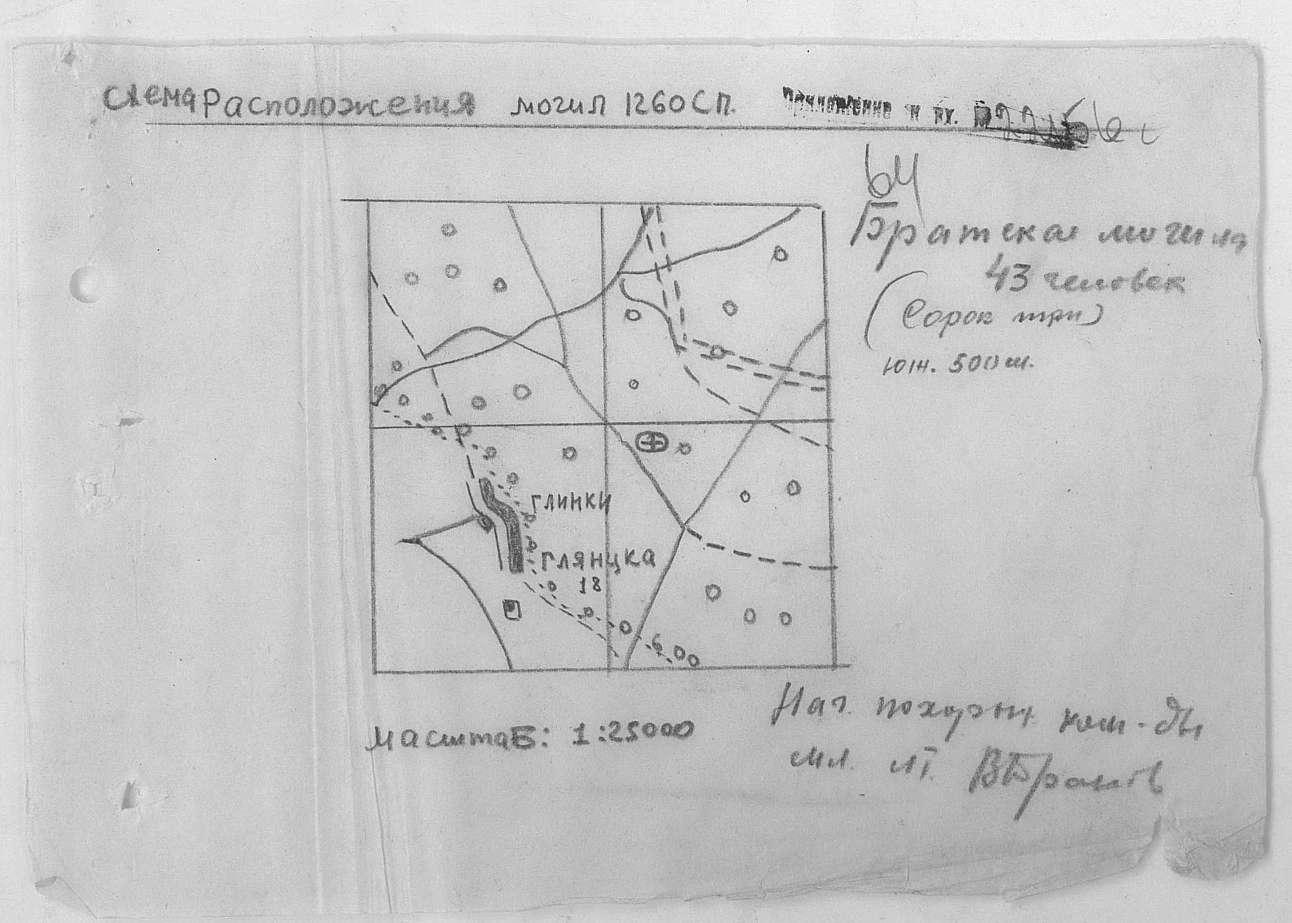 схема расположения могил 1260 СП.
Приложение к вх.
64
Братская могила
43 человек
(Сорок три)
юж. 500 м.
ГЛИНКИ
ГЛЯНЦКА
18
масштаБ: 1:25000
Нач. похорон. ком-ды
мл. лт.